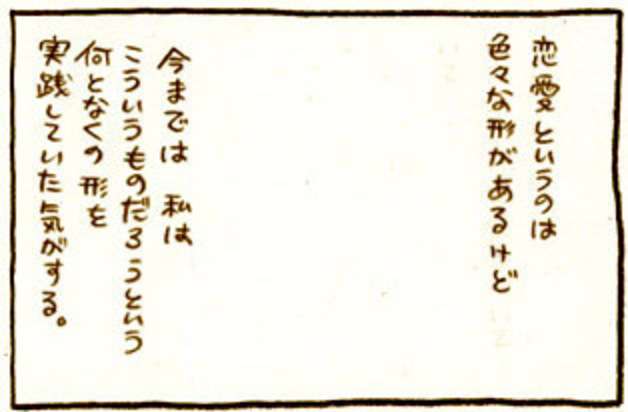 恋愛というのは
色々な形があるけど
今までは 私は
こういうものだろうという
何となくの形を
実践していた気がする。